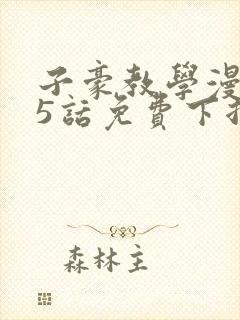 子豪教學漫
5話免費下
森林主